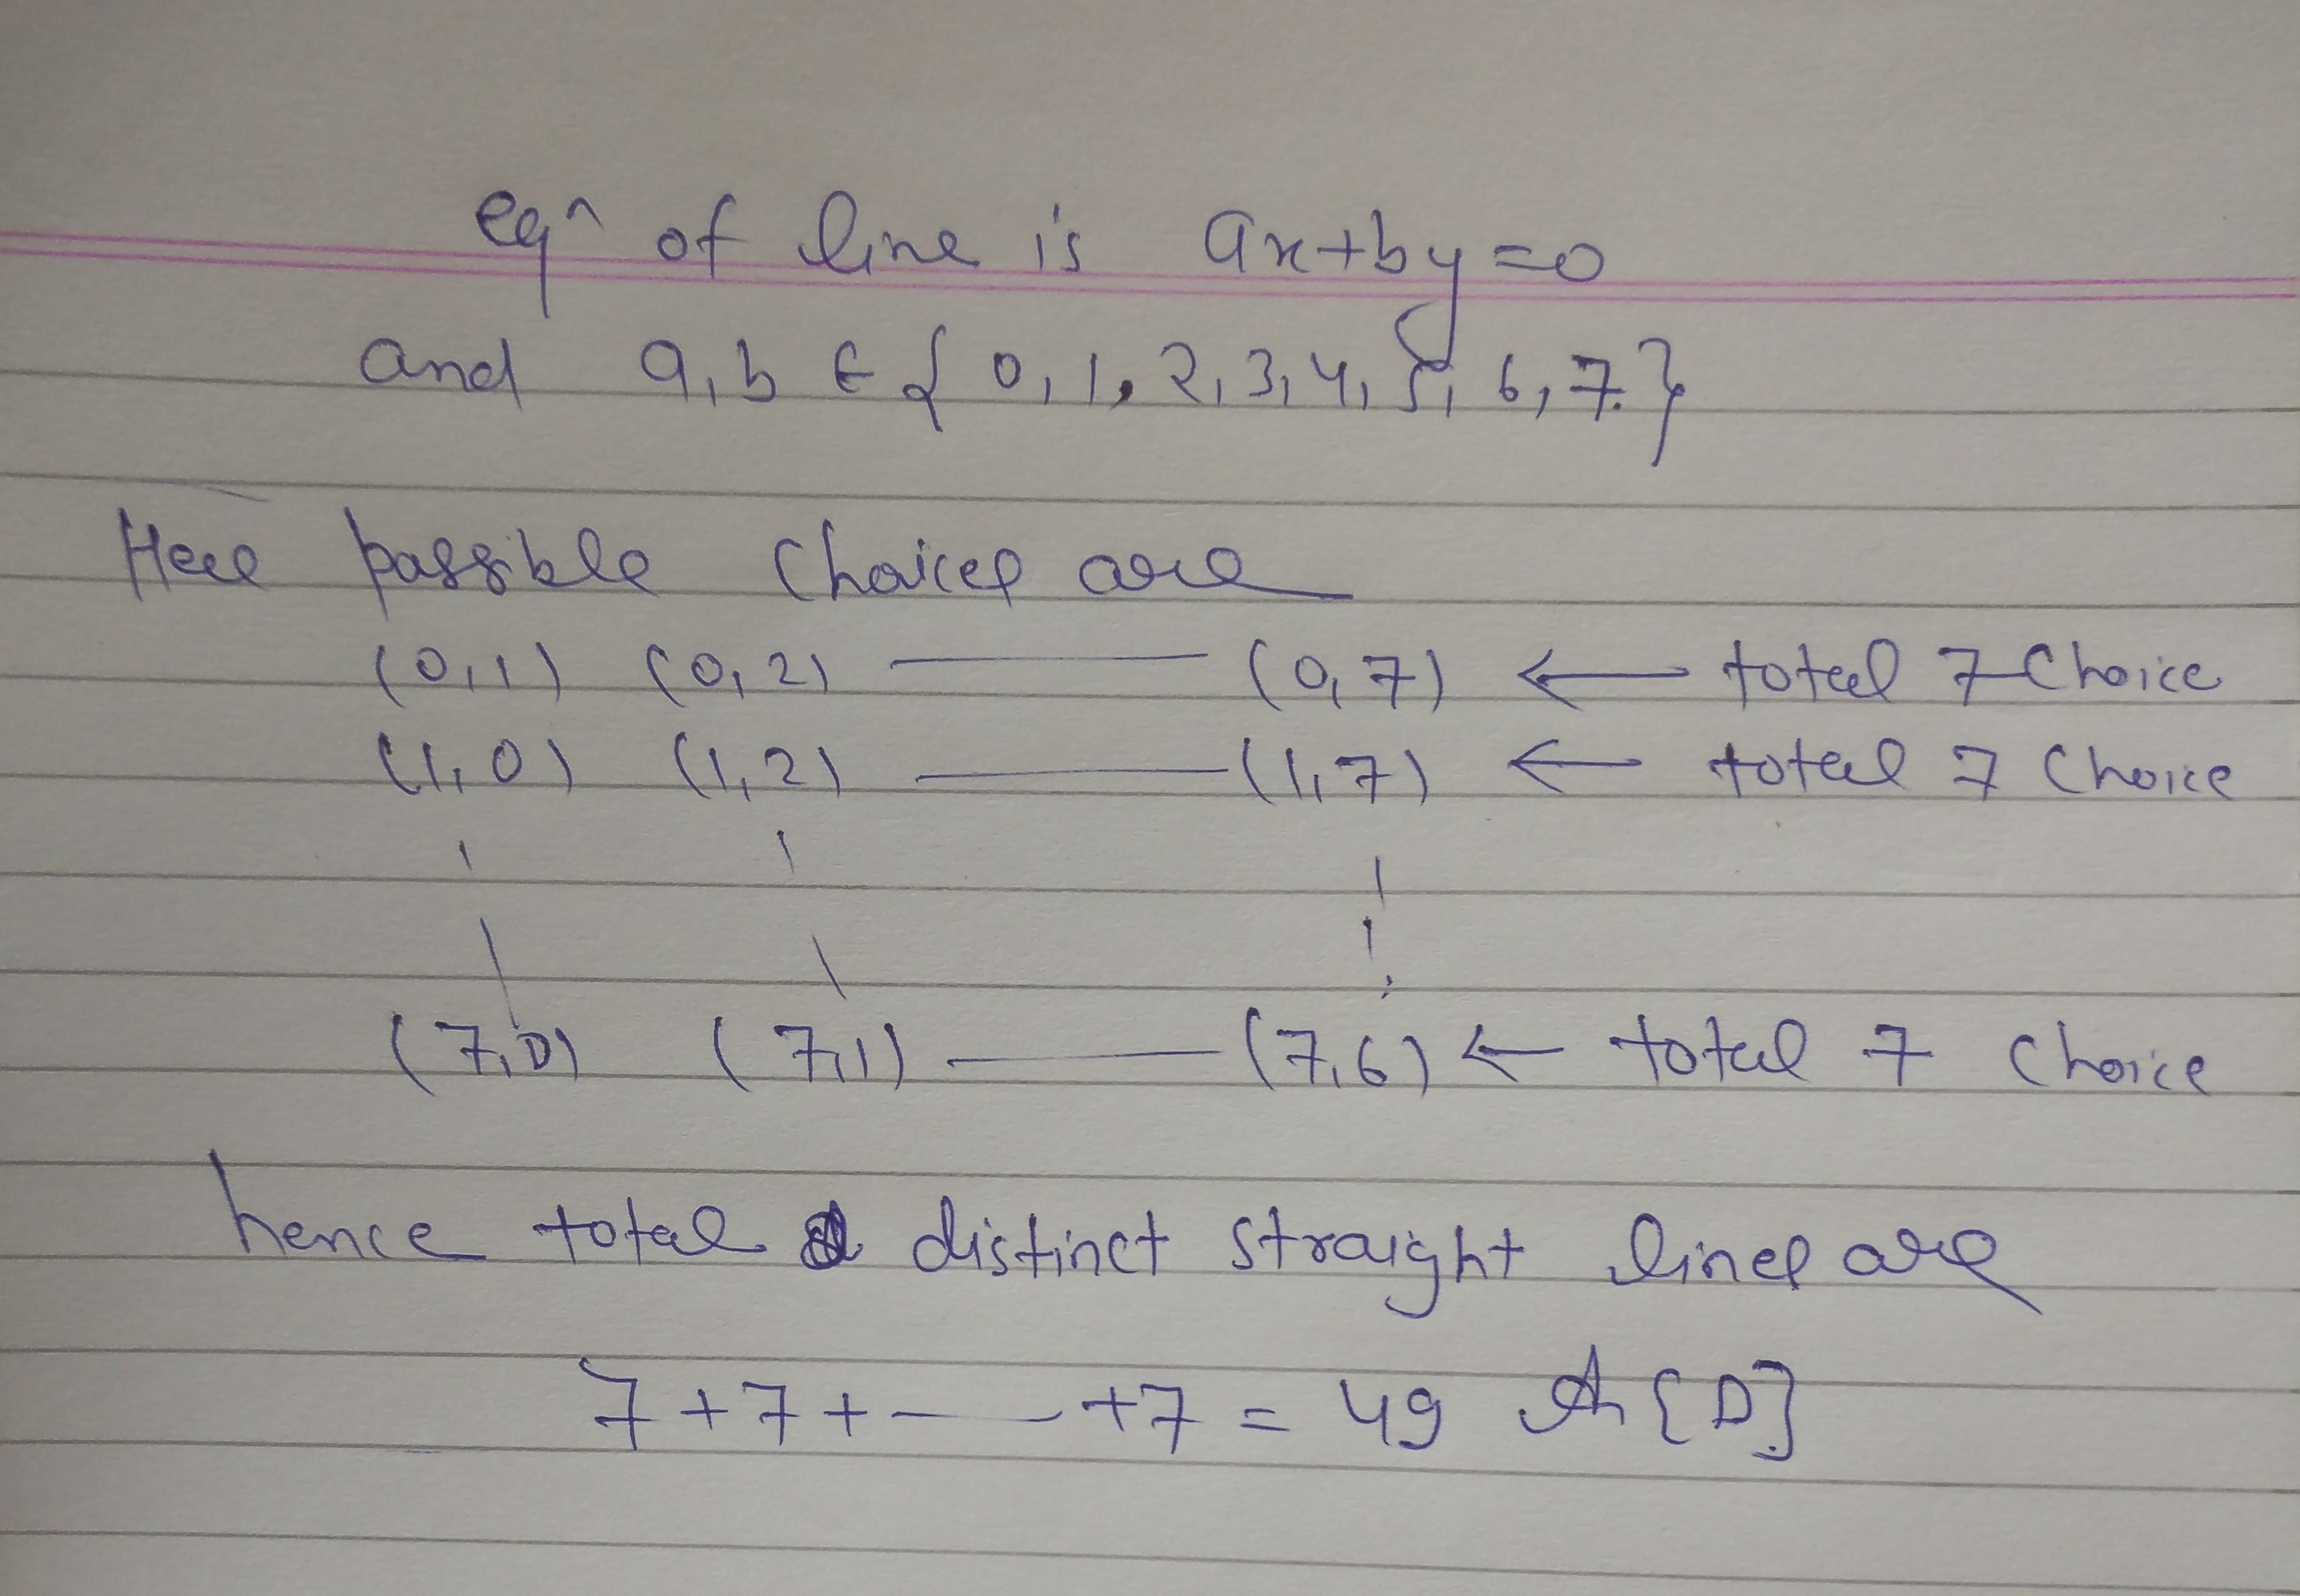 eqn of line is ax+by=0
and a,b ∈ { 0, 1, 2, 3, 4, 5, 6, 7.}
Here possible choices are
(0,1) (0,2) —— (0,7) ← total 7 Choice
(1,0) (1,2) —— (1,7) ← total 7 Choice
(7,0) (7,1) —— (7,6) ← total 7 Choice
hence total distinct straight lines are
7+7+ —— +7 = 49 A {D}